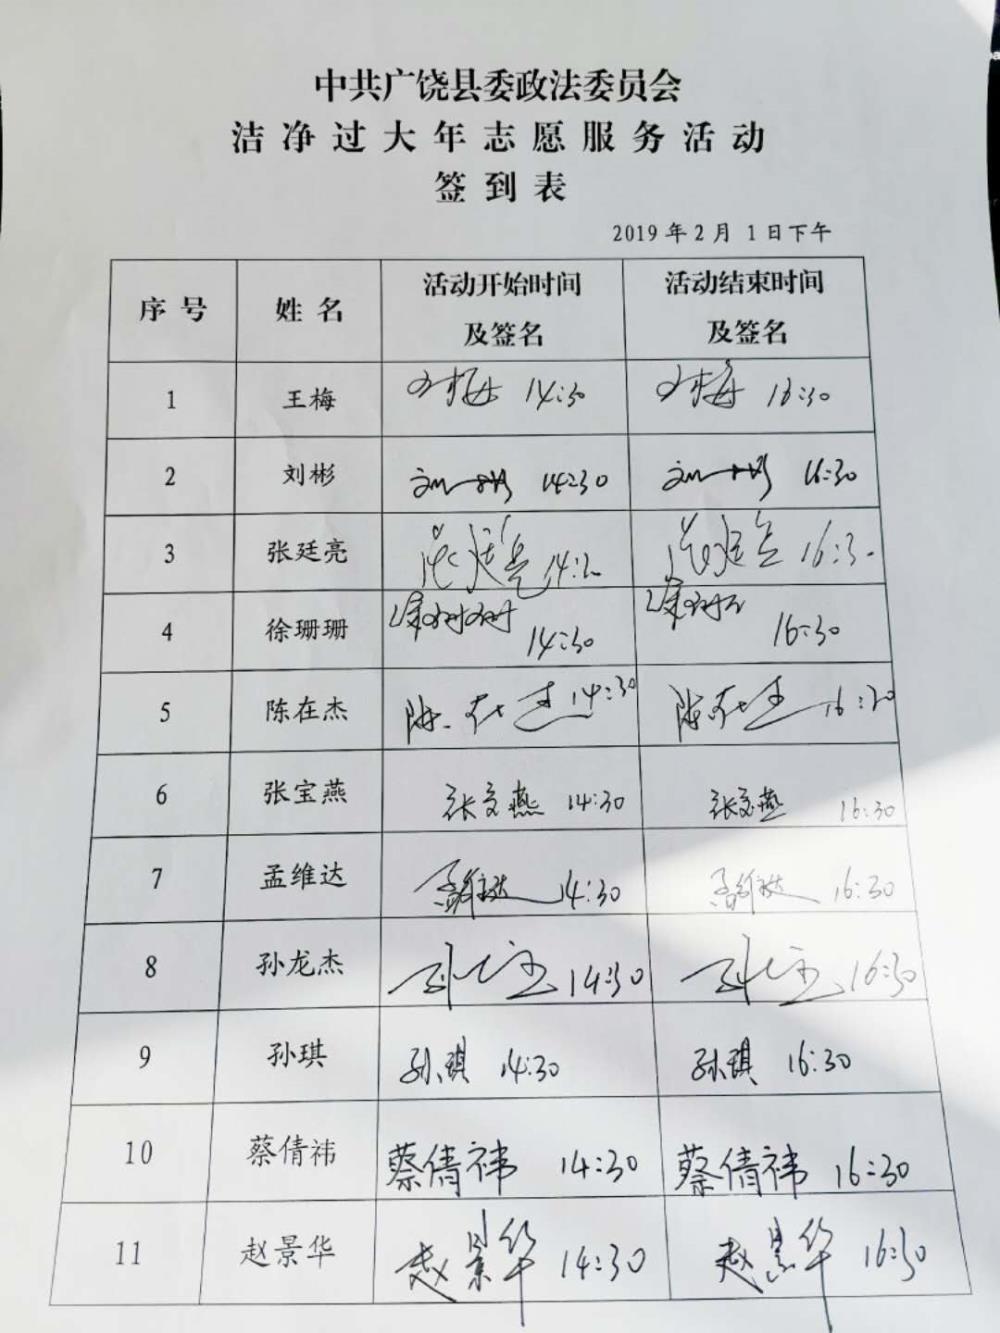 中共广饶县委政法委员会
洁净过大年志愿服务活动
签到表
2019年2月1日下午
序号 姓名 活动开始时间及签名 活动结束时间及签名
1 王梅 王梅 14:30 王梅 16:30
2 刘彬 刘彬 14:30 刘彬 16:30
3 张廷亮 张廷亮 14:30 张廷亮 16:30
4 徐珊珊 徐珊珊 14:30 徐珊珊 16:30
5 陈在杰 陈在杰 14:30 陈在杰 16:30
6 张宝燕 张宝燕 14:30 张宝燕 16:30
7 孟维达 孟维达 14:30 孟维达 16:30
8 孙龙杰 孙龙杰 14:30 孙龙杰 16:30
9 孙琪 孙琪 14:30 孙琪 16:30
10 蔡倩祎 蔡倩祎 14:30 蔡倩祎 16:30
11 赵景华 赵景华 14:30 赵景华 16:30